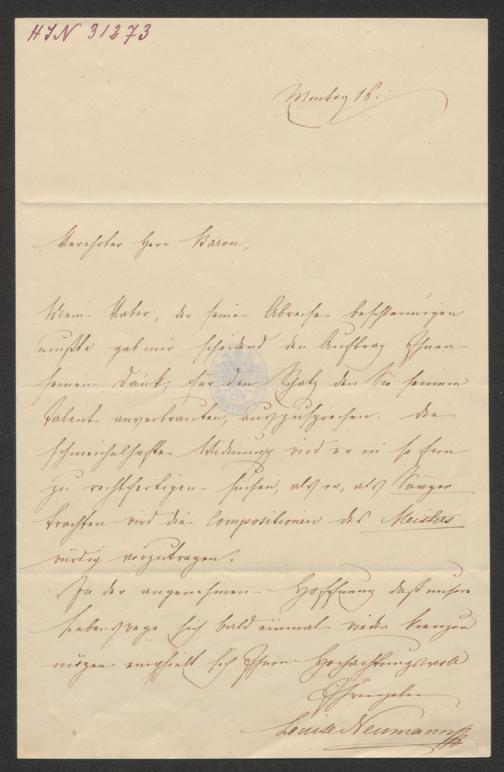 HIN 31273
Montag 16.
Verehrter Herr Baron,
Mein Vater, der seine Abreise beschleunigen
mußte gab mir scheidend den Auftrag Ihnen
seinen Dank, für den Schatz den Sie seinem
Talent anvertrauten, auszusprechen. Die
schmeichelhafte Widmung wird er in so fern
zu rechtfertigen suchen, als er, als Sänger
trachten wird die Compositionen des Meisters
würdig vorzutragen.
In der angenehmen Hoffnung daß unsere
Lebenswege sich bald einmal wieder kreuzen
mögen empfielt sich Ihnen Hochachtungsvoll
Louise Neumann